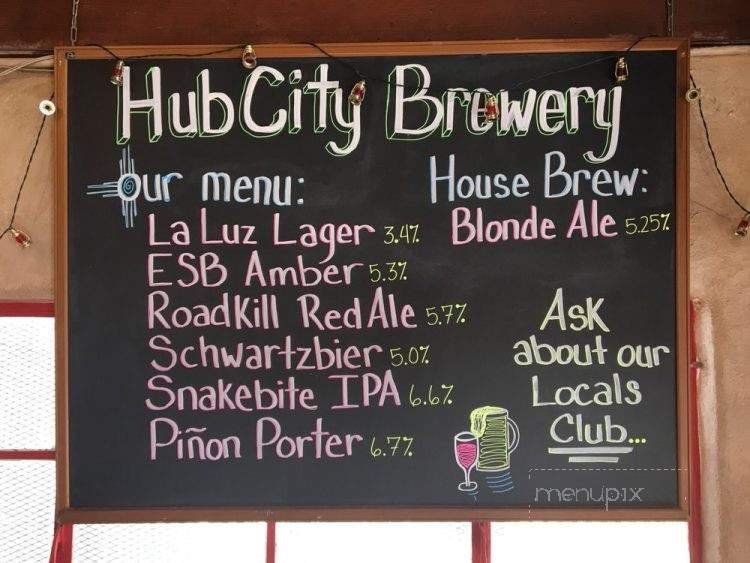 Hub City Brewery
our menu:
La Luz Lager 3.4%
ESB Amber 5.3%
RoadKill Red Ale 5.7%
Schwartzbier 5.0%
Snakebite IPA 6.6%
Piñon Porter 6.7%
House Brew:
Blonde Ale 5.25%
Ask
about our
Locals
Club...
menupix